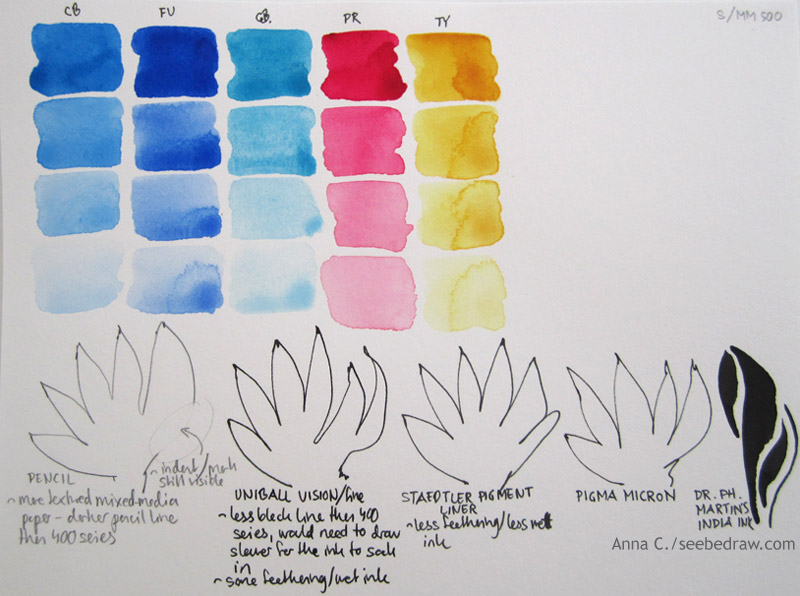 CB FU GB. PR TY
S/MM 500
PENCIL
~ more textured mixed media
paper - darker pencil line
then 400 seies
~ indent/mark
still visible
UNIBALL VISION/fine
~ less black line then 400
seies, would need to draw
slower for the ink to soak
in
~ some feathering/wet ink
STAEDTLER PIGMENT
LINER
~ less feathering/less wet
ink
PIGMA MICRON
DR. PH.
MARTINS
INDIA INK
Anna C./seebedraw.com